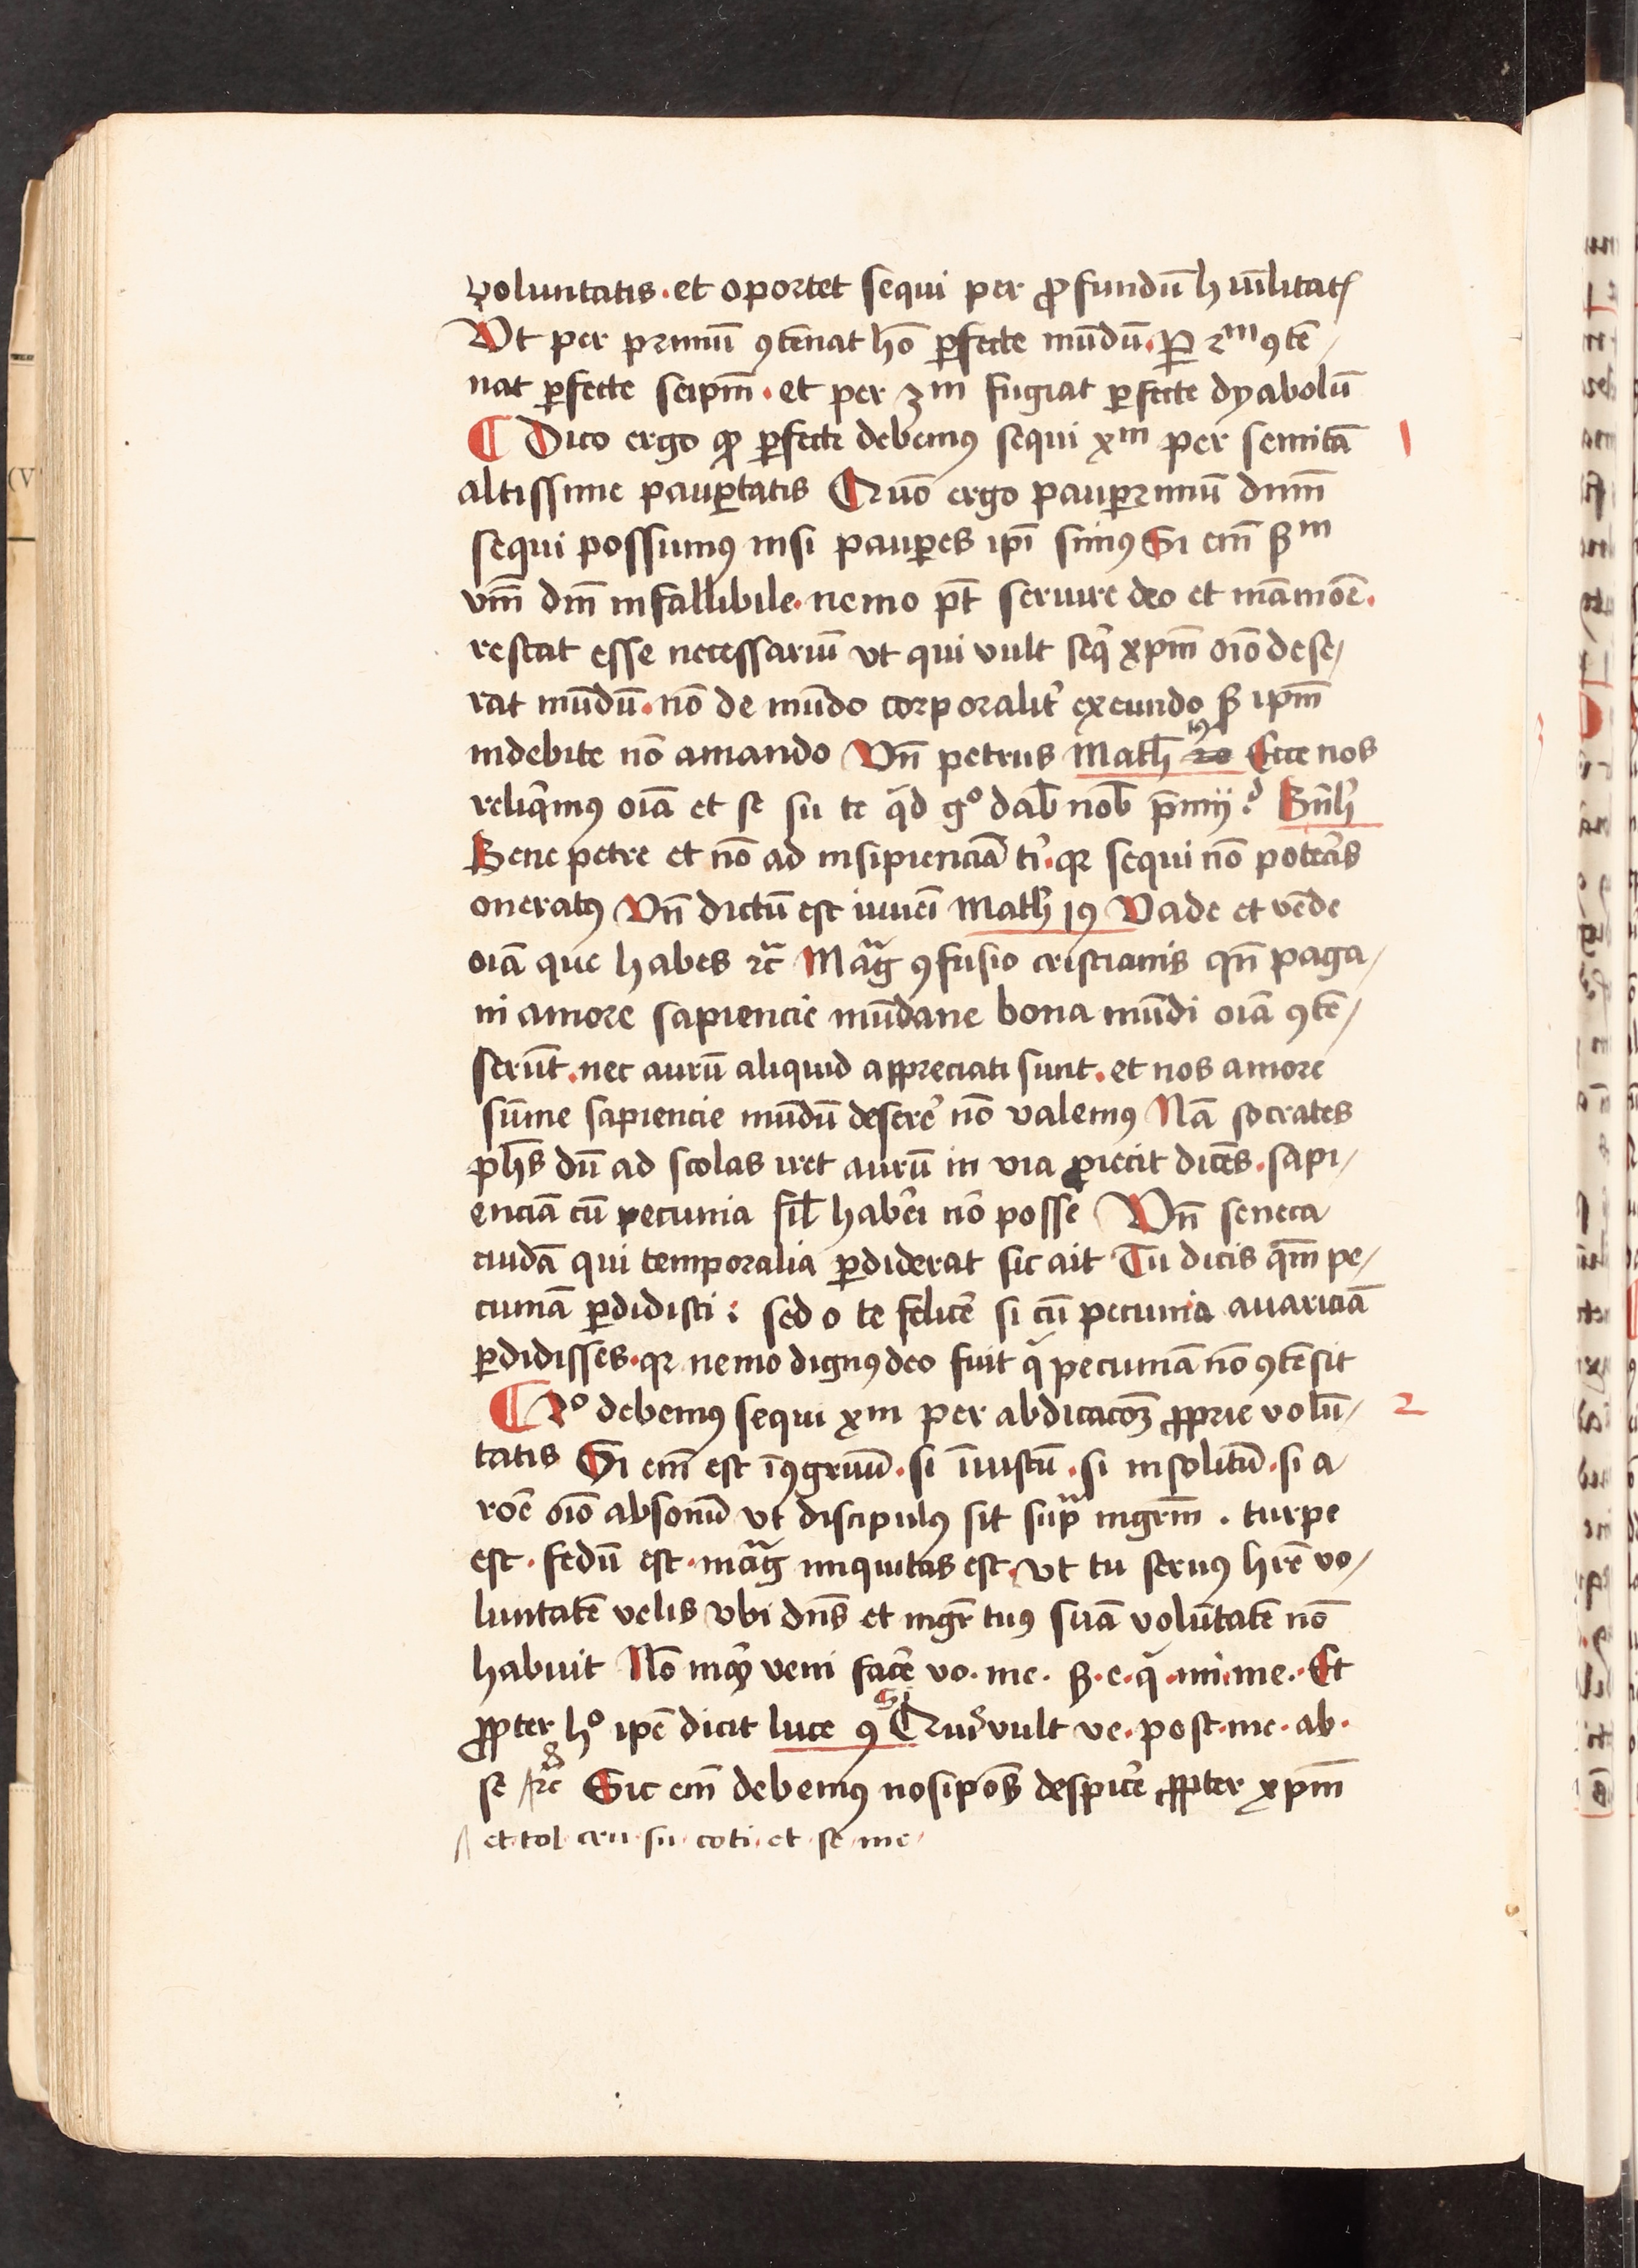 voluntatis. et oportet sequi per ꝓfundū hūilitatꝭ
Vt per primū ꝯtēnat hō ꝑfecte mūdū. Per 2ᵐ ꝯtē/
nat ꝑfecte seipm̄. et per 3ᵐ fugiat ꝑfecte dyabolū
¶ Dico ergo ꝙ ꝑfecte debemꝰ sequi xᵐ per semitā 1
altissime pauꝑtatis Quō ergo pauꝑrimū dnm̄
sequi possumꝰ nisi pauꝑes ip̄i simꝰ Si em̄ ẜᵐ
vm̄ dm̄ infallibile. nemo pt̄ seruire deo et māmoē.
restat esse necessariū vt qui vult seq̉ xpm̄ oīo dese/
rat mūdū. nō de mūdo corporalit̉ exeundo ẜ ipm̄
indebite nō amando Vn̄ petrus Math̄ 19 Ecce nos
reliq̉mꝰ oīa et se su te qͥd gͦ dab̄ nob̄ p̄mij? Bn̄h̉
Bene petre et nō ad insipienciā t̉. qꝛ sequi nō poter̉s
oneratꝰ Vn̄ dictū est iuueī Math̉ 19 Vade et vēde
oīa que habes ꝛc̄ Mag̉ ꝯfusio cristianis qn̄ paga/
ni amore sapiencie mūdane bona mūdi oīa ꝯtē/
serūt. nec aurū aliquid appreciati sunt. et nos amore
sūme sapiencie mūdū deser̉e nō valemꝰ Nā socrates
ph̄s dū ad scolas iret aurū in via ꝓiecit dicēs. sapi/
enciā cū pecunia sil̄ haber̉i nō posse Vn̄ seneca
cuidā qui temporalia ꝑdiderat sic ait Tu dicis qm̄ pe/
cuniā ꝑdidisti: sed o te felicē si cū pecunia auariciā
ꝑdidisses. qꝛ nemo dignꝰ deo fuit qͥ pecuniā nō ꝯtēsit
¶ 2ͦ debemꝰ sequi xm per abdicacōꝫ ꝓprie volū/ 2
tatis Si em̄ est īꝯgruū. si īiustū. si insolitū. si a
roē oīo absonū vt discipulꝰ sit supͣ mgr̄m. turpe
est. fedū est. magͣ iniquitas est. vt tu seruꝰ hr̄e vo/
luntatē velis vbi dn̄s et mgr̄ tuꝰ suā volūtatē nō
habuit Nō inqͥ veni facer̉e vo. me. ẜ. e. qͥ. mi. me. Et
ꝓpter hͦ ipē dicit luce 9 Si Quis vult ve. post. me. ab.
se ꝛc̄ Sic em̄ debemꝰ nosipōs despicer̉e ꝓpter xpm̄
et tol cru su coti. et se me